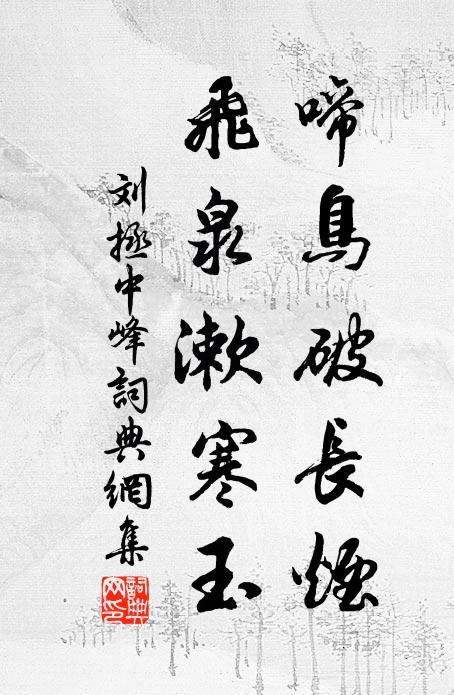 啼鳥破長煙
飛泉漱寒玉
刘拯中峰詞典網集
詞典
网印